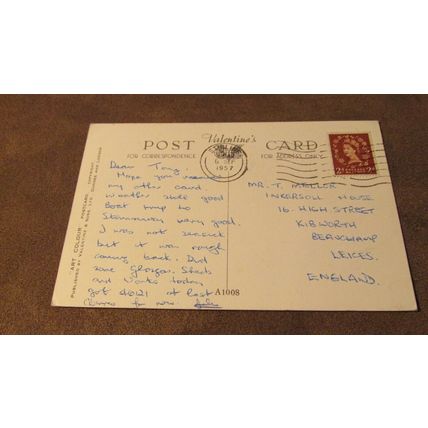 Valentine's
POST CARD
FOR CORRESPONDENCE FOR ADDRESS ONLY
1957
2D 2D
Dear Tony,
Hope you received
my other card.
Weather still good
Boat trip to
very good.
I was not seasick
but it was rough
coming back. Did
some Sheds
and Works today
got at last
for now.
MR. T. MELLOR
INKERSOLL HOUSE
16, HIGH STREET
KIBWORTH
BEAUCHAMP
LEICS.
ENGLAND
A1008
"ART COLOUR" POSTCARD COPYRIGHT
PUBLISHED BY VALENTINE & SONS LTD. DUNDEE AND LONDON